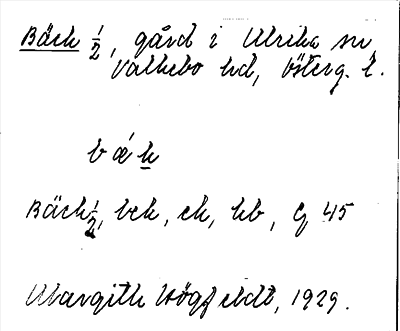 Bäck 1/2, gård i Ulrika sn,
Valkebo hd, Österg. l.
b æ k
Bäck 1/2, bck, ek, hb, G 45
Margith Högfeldt, 1929.